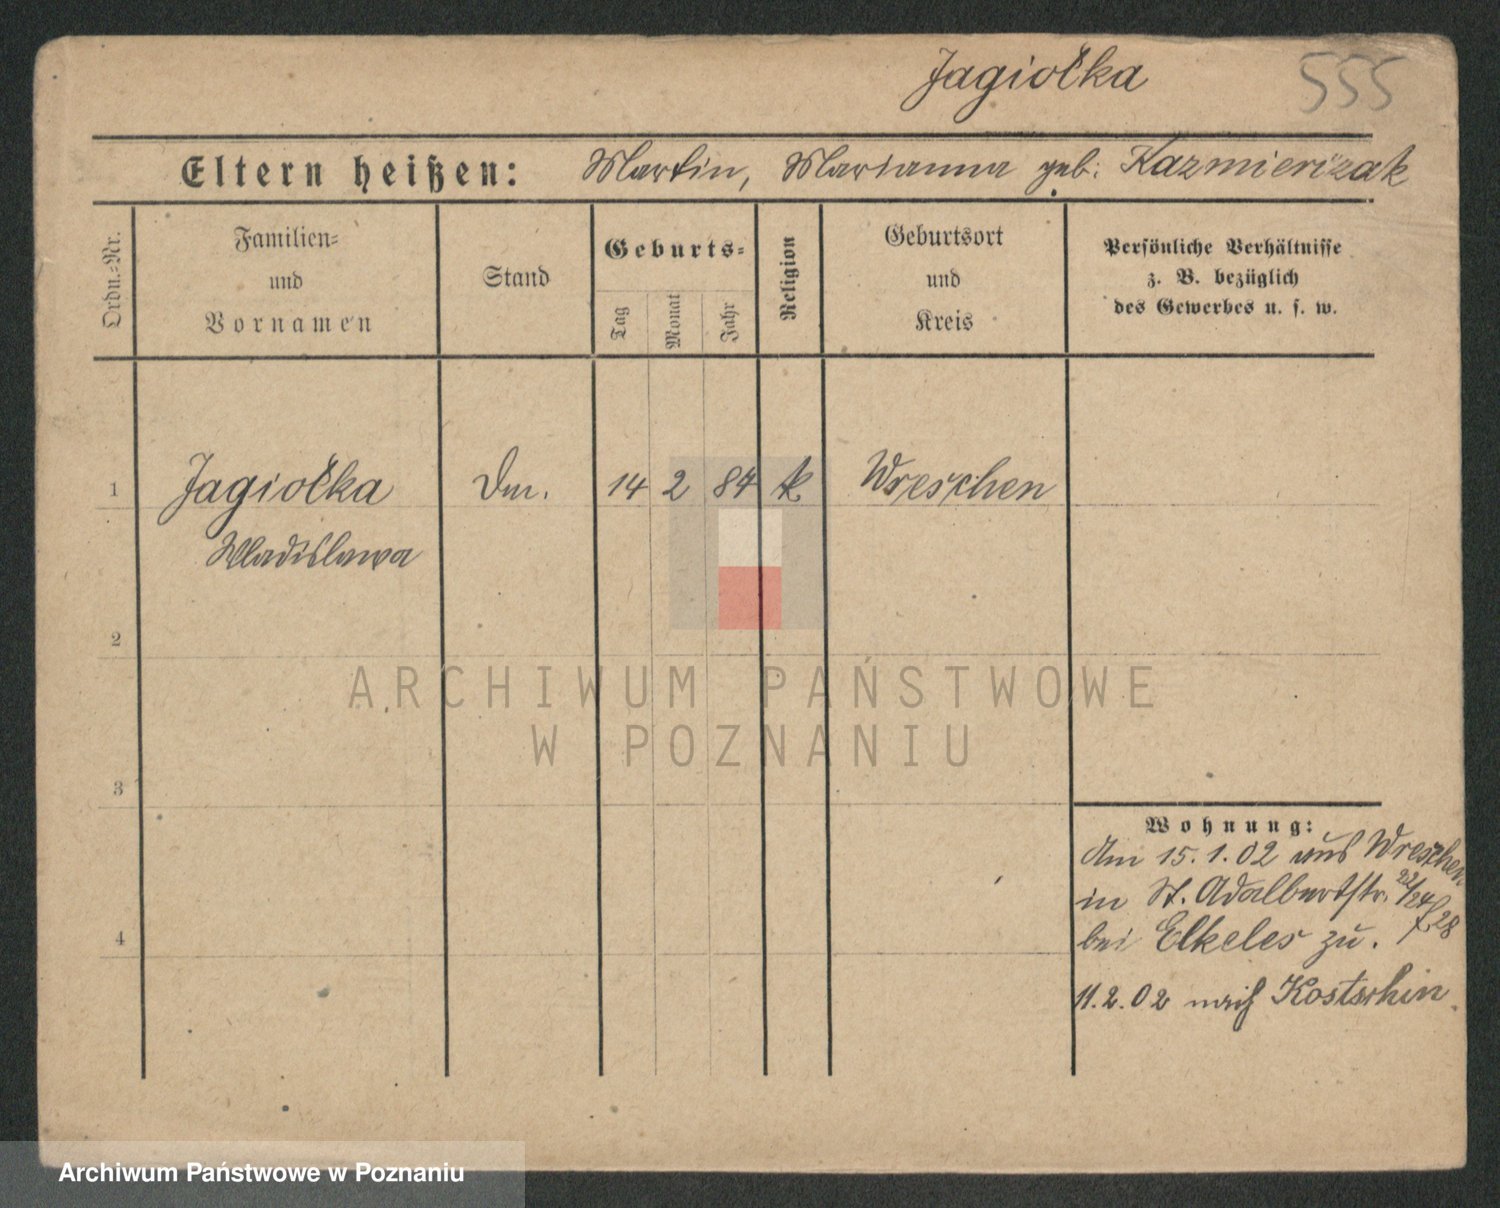 Jagiołka 555
Eltern heißen: Martin, Marianna geb. Kazmierczak
Ordn.-Nr.
Familien-
und
Vornamen
Stand
Geburts-
Tag
Monat
Jahr
Religion
Geburtsort
und
Kreis
Persönliche Verhältnisse
z. B. bezüglich
des Gewerbes u. s. w.
1 Jagiołka 14 2 84 k Wreschen
Wladislawa
2
ARCHIWUM PAŃSTWOWE
W POZNANIU
3
Wohnung:
Am 15.1.02 aus Wreschen
in St. Adalbertstr. 22/24
bei Elkeles zu. f. 28
4
11.2.02 nach Kostschin.
Archiwum Państwowe w Poznaniu